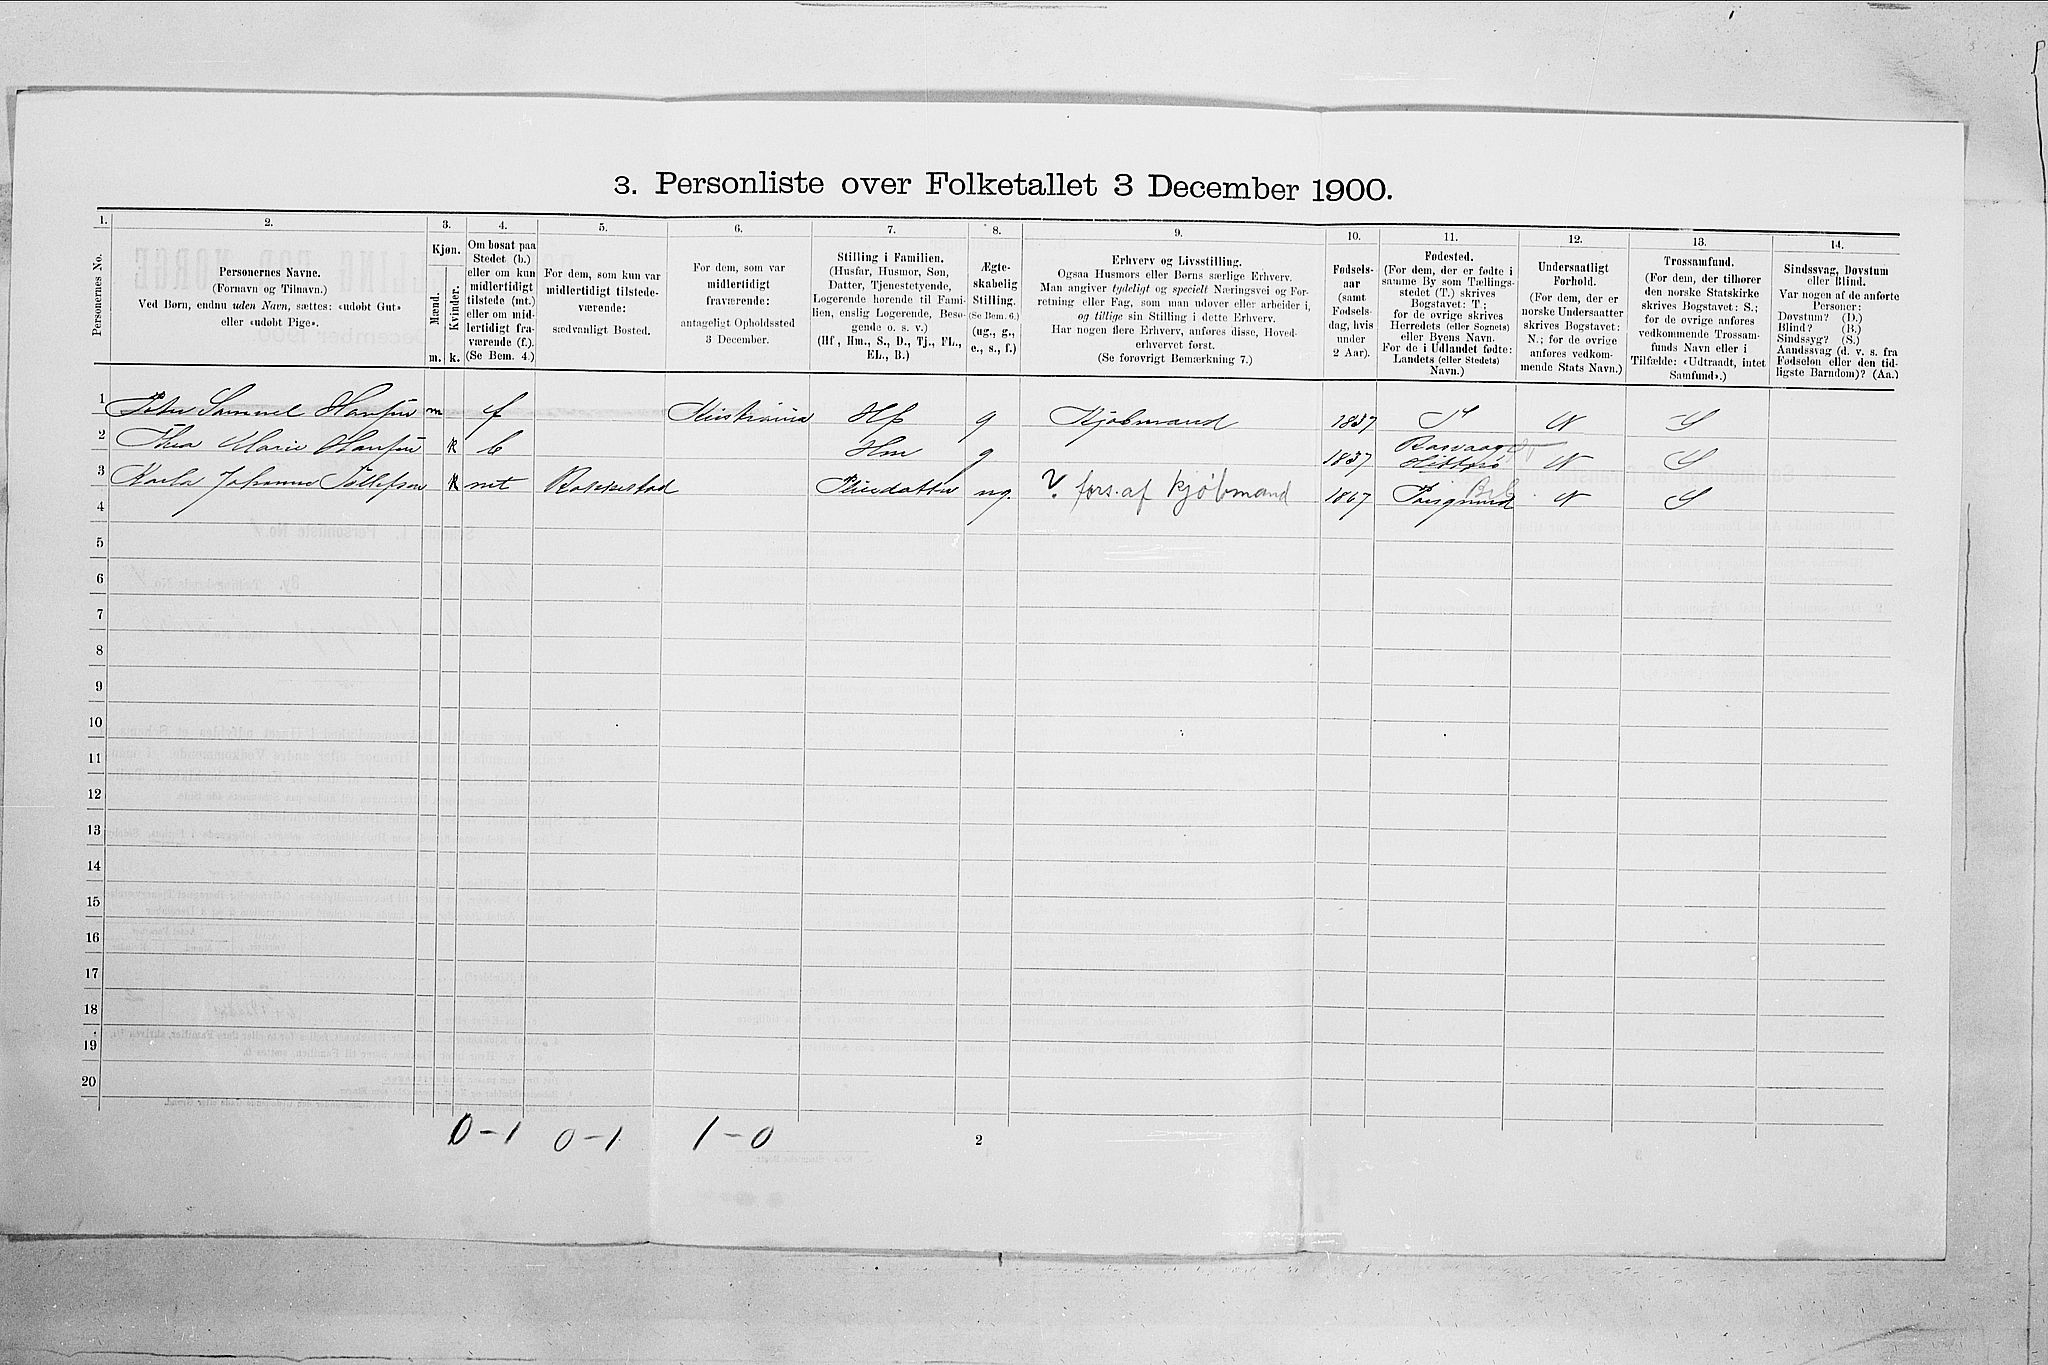 3. Personliste over Folketallet 3 December 1900.
1. 2. 3. 4. 5. 6. 7. 8. 9. 10. 11. 12. 13. 14.
Personernes No.
Personernes Navne.
(Fornavn og Tilnavn.)
Ved Børn, endnu uden Navn, sættes: «udøbt Gut»
eller «udøbt Pige».
Kjøn.
Mænd.
Kvinder.
m. k.
Om bosat paa
Stedet (b.)
eller om kun
midlertidigt
tilstede (mt.)
eller om mid-
lertidigt fra-
værende (f.).
(Se Bem. 4.)
For dem, som kun var
midlertidigt tilstede-
værende:
sædvanligt Bosted.
For dem, som var
midlertidigt
fraværende:
antageligt Opholdssted
3 December.
Stilling i Familien.
(Husfar, Husmor, Søn,
Datter, Tjenestetyende,
Logerende hørende til Fami-
lien, enslig Logerende, Besø-
gende o. s. v.)
(Hf, Hm., S., D., Tj., FL.,
EL., B.)
Ægte-
skabelig
Stilling.
(Se Bem. 6.)
(ug., g.,
e., s., f.)
Erhverv og Livsstilling.
Ogsaa Husmors eller Børns særlige Erhverv.
Man angiver tydeligt og specielt Næringsvei og For-
retning eller Fag, som man udover eller arbeider i,
og tillige sin Stilling i dette Erhverv.
Har nogen flere Erhverv, anføres disse, Hoved-
erhvervet først.
(Se forøvrigt Bemærkning 7.)
Fødsels-
aar
(samt
Fødsels-
dag, hvis
under
2 Aar).
Fødested.
(For dem, der er fødte i
samme By som Tællings-
stedet (T.) skrives
Bogstavet: T.;
for de øvrige skrives
Herredets (eller Sognets)
eller Byens Navn.
For de i Udlandet fødte:
Landets (eller Stedets)
Navn.)
Undersaatligt
Forhold.
(For dem, der er
norske Undersaatter
skrives Bogstavet:
N.; for de øvrige
anføres vedkom-
mende Stats Navn.)
Trossamfund.
(For dem, der tilhører
den norske Statskirke
skrives Bogstavet: S.;
for de øvrige anføres
vedkommende Trossam-
funds Navn eller i
Tilfælde: «Udtraadt, intet
Samfund».)
Sindssvag, Døvstum
eller Blind.
Var nogen af de anførte
Personer:
Døvstum? (D.)
Blind? (B.)
Sindssyg? (S.)
Aandssvag (d. v. s. fra
Fødselen eller den tid-
ligste Barndom)? (Aa.)
1 Peter Samuel Hansen m f Kristiania Hf g Kjøbmand 1837 T N S
2 Thea Marie Hansen k b Hm g 1837 Rasvaag Hitterø N S
3 Karla Johanne Tellefsen k mt Bakkestad Pleiedatter ug. ? fors. af kjøbmand 1867 Porsgrund N S
4
5
6
7
8
9
10
11
12
13
14
15
16
17
18
19
20
0-1 0-1 1-0
2